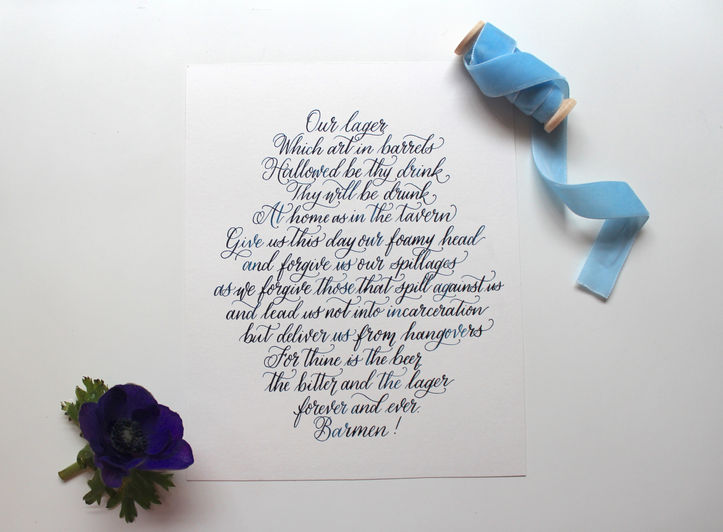 Our lager,
Which art in barrels
Hallowed be thy drink,
Thy will be drunk,
At home as in the tavern
Give us this day our foamy head
and forgive us our spillages
as we forgive those that spill against us
and lead us not into incarceration
but deliver us from hangovers
For thine is the beer,
the bitter and the lager
forever and ever.
Barmen!